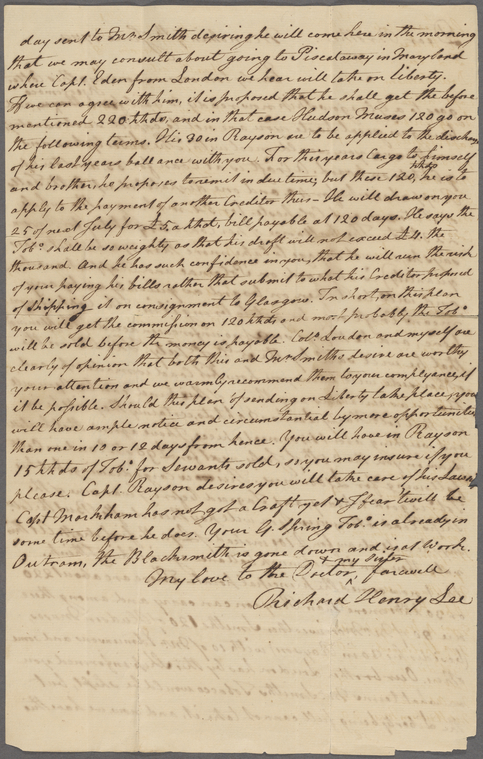 day sent to Mr. Smith desiring he will come here in the morning
that we may consult about going to Piscataway in Maryland
where Capt. Eden from London we hear will take on liberty.
If we can agree with him, it is proposed that he shall get the before
mentioned 220 hhds, and in that case Hudson Muses 120 go on
the following terms. His 30 in Rayson are to be applied to the discharge
of his last years ballance with you. For this years Cargo to himself
and brother, he proposes to remit in due time; but these 120 hhds, he is to
apply to the payment of another Creditor thus - He will draw on you
25 of next July for £5 a hhd, bill payable at 120 days. He says the
Tobo. shall be so weighty as that his draft will not exceed £4. the
thousand. And he has such confidence in you, that he will run the risk
of your paying his bills rather that submit to what his Creditor proposed
of Shipping it on consignment to Glasgow. In short, on this plan
you will get the commission on 120 hhds and most probably the Tobo.
will be sold before the money is payable. Colo. Loudon and myself are
clearly of opinion that both this and Mr Smiths desire are worthy
your attention and we warmly recommend them to your complyance, if
it be possible. Should this plan of sending on Liberty take place, you
will have ample notice and circumstantial by more opportunities
than one in 10 or 12 days from hence. You will have in Rayson
15 hhds of Tobo. for Servants sold, so you may insure if you
please. Capt. Rayson desires you will take care of his
Capt Markham has not got a Craft yet & I fear twill be
some time before he does. Your G. Spring Tobo. is already in
Outram, the Blacksmith is gone down and is at Work.
My love to the Doctor & my Sister farewell
Richard Henry Lee